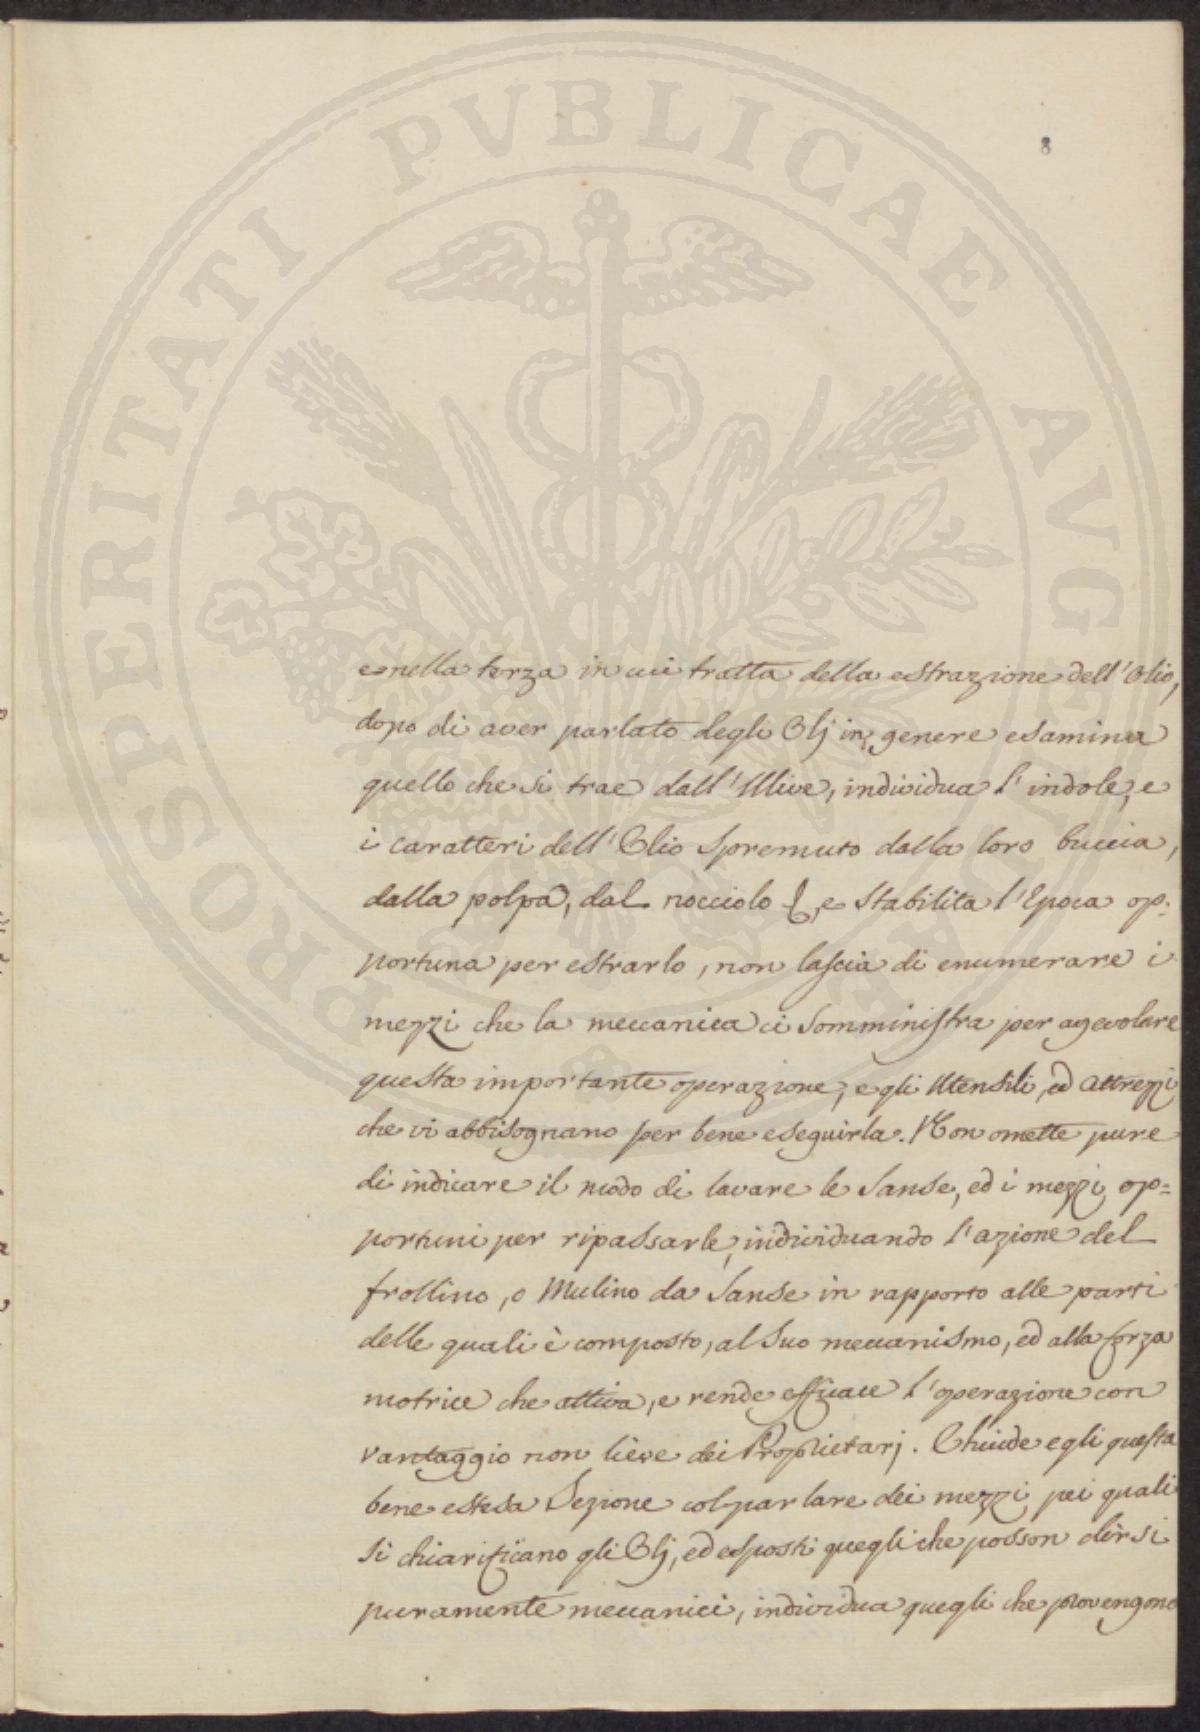 PROSPERITATI PVBLICAE AVGENDAE
8
e nella terza in cui tratta della estrazione dell'Olio,
dopo di aver parlato degli Olj in genere esamina
quello che si trae dall'Ulive, individua l'indole, e
i caratteri dell'Olio spremuto dalla loro buccia,
dalla polpa, dal nocciolo &, e stabilita l'Epoca op:
portuna per estrarlo, non lascia di enumerare i
mezzi che la meccanica ci somministra per agevolare
questa importante operazione, e gli Utensili, ed attrezzi
che vi abbisognano per bene eseguirla. Non omette pure
di indicare il modo di lavare le Sanse, ed i mezzi op=
portuni per ripassarle, individuando l'azione del
frollino, o Mulino da Sanse in rapporto alle parti
delle quali è composto, al suo meccanismo, ed alla forza
motrice che attiva, e rende efficace l'operazione con
vantaggio non lieve dei Proprietarj. Chiude egli questa
bene estesa Sezione col parlare dei mezzi pei quali
si chiarificano gli Olj, ed esposti quegli che posson dirsi
puramente meccanici, individua quegli che provengono